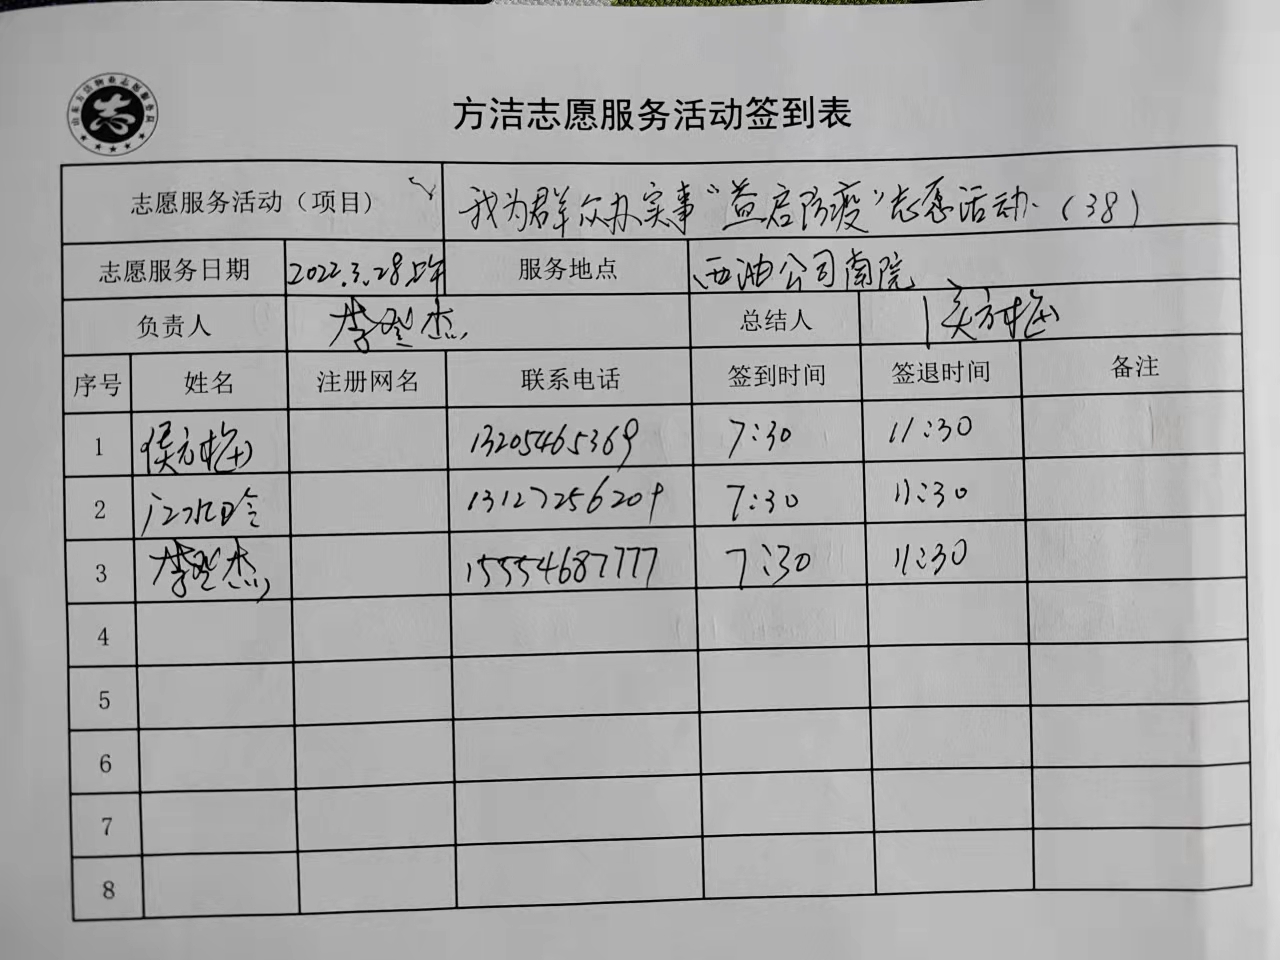 山东方洁物业志愿服务队
志
方洁志愿服务活动签到表
志愿服务活动（项目） 我为群众办实事“益启防疫”志愿活动.（38）
志愿服务日期 2022.3.28上午 服务地点 西油公司南院
负责人 李登杰 总结人 侯方梅
序号 姓名 注册网名 联系电话 签到时间 签退时间 备注
1 侯方梅 13205465369 7:30 11:30
2 13127256209 7:30 11:30
3 李登杰 15554687777 7:30 11:30
4
5
6
7
8